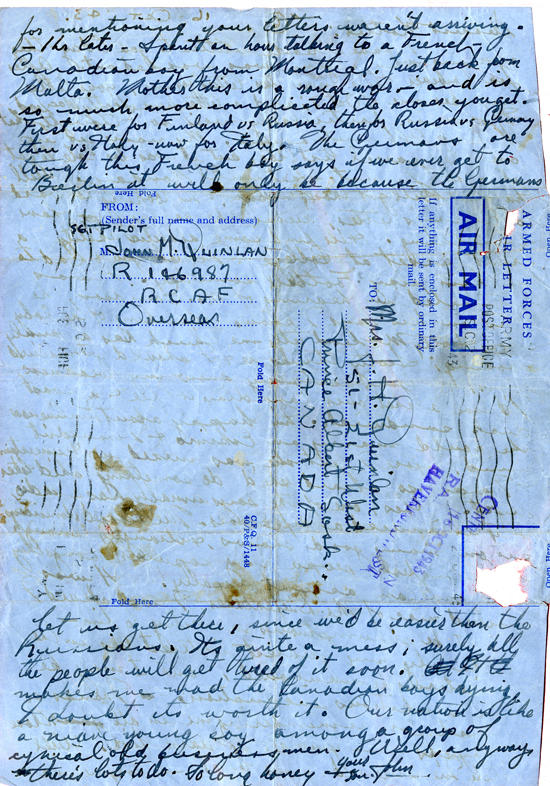 for mentioning your letters weren't arriving.
- 1 hr later - Spent an hour talking to a French
Canadian boy from Montreal. Just back from
Malta. Mother this is a rough war - and is
so much more complicated the closer you get.
First were for Finland vs Russia, then for Russia vs Germany
then vs Italy - now for Italy. The Germans are
tough this French boy says if we ever get to
Berlin it will only be because the Germans
Fold Here
FROM:
(Sender's full name and address)
SGT PILOT
M John M. Quinlan
R 146987
RCAF
Overseas
Fold Here
C.F.Q. 11
40/P&S/1448
Fold Here
ARMED FORCES'
AIR LETTER
AIR MAIL
If anything is enclosed in this
letter it will be sent by ordinary
mail.
TO:
Mrs. J. H. Quinlan
51 - 21st West
Prince Albert Sask.
CANADA
16 OC 1943
Open Here
let us get there, since we'd be easier than the
Russians. Its quite a mess; surely all
the people will get tired of it soon. It
makes me mad the Canadian boys dying
I doubt its worth it. Our nation is like
a naive young boy among a group of
cynical old business men. Well, anyways
there's lots to do. So long honey your
son, John